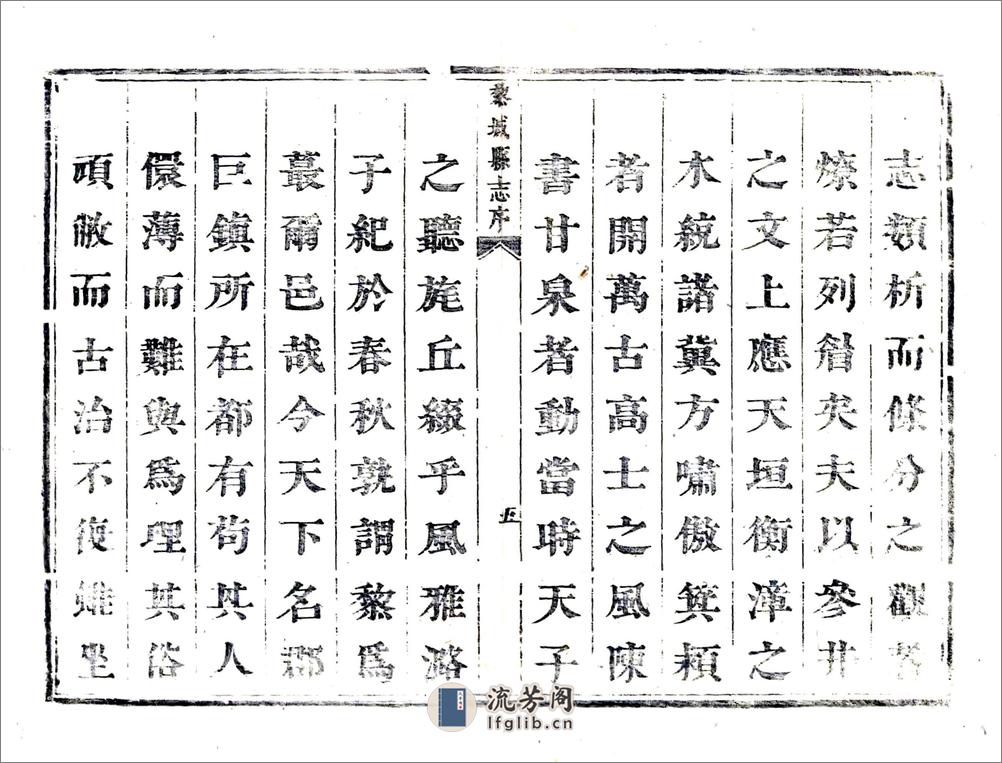 志類析而條分之觀者
燎若列眉矣夫以參井
之文上應天垣衡漳之
水統諸冀方嘯傲箕潁
者開萬古高士之風陳
書甘泉者動當時天子
黎城縣志序
五
之聽旄丘綴乎風雅潞
子紀於春秋孰謂黎爲
蕞爾邑哉今天下名郡
巨鎮所在都有茍其人
儇薄而難與爲理其俗
頑敝而古治不復雖坐
流芳阁
lfglib.cn